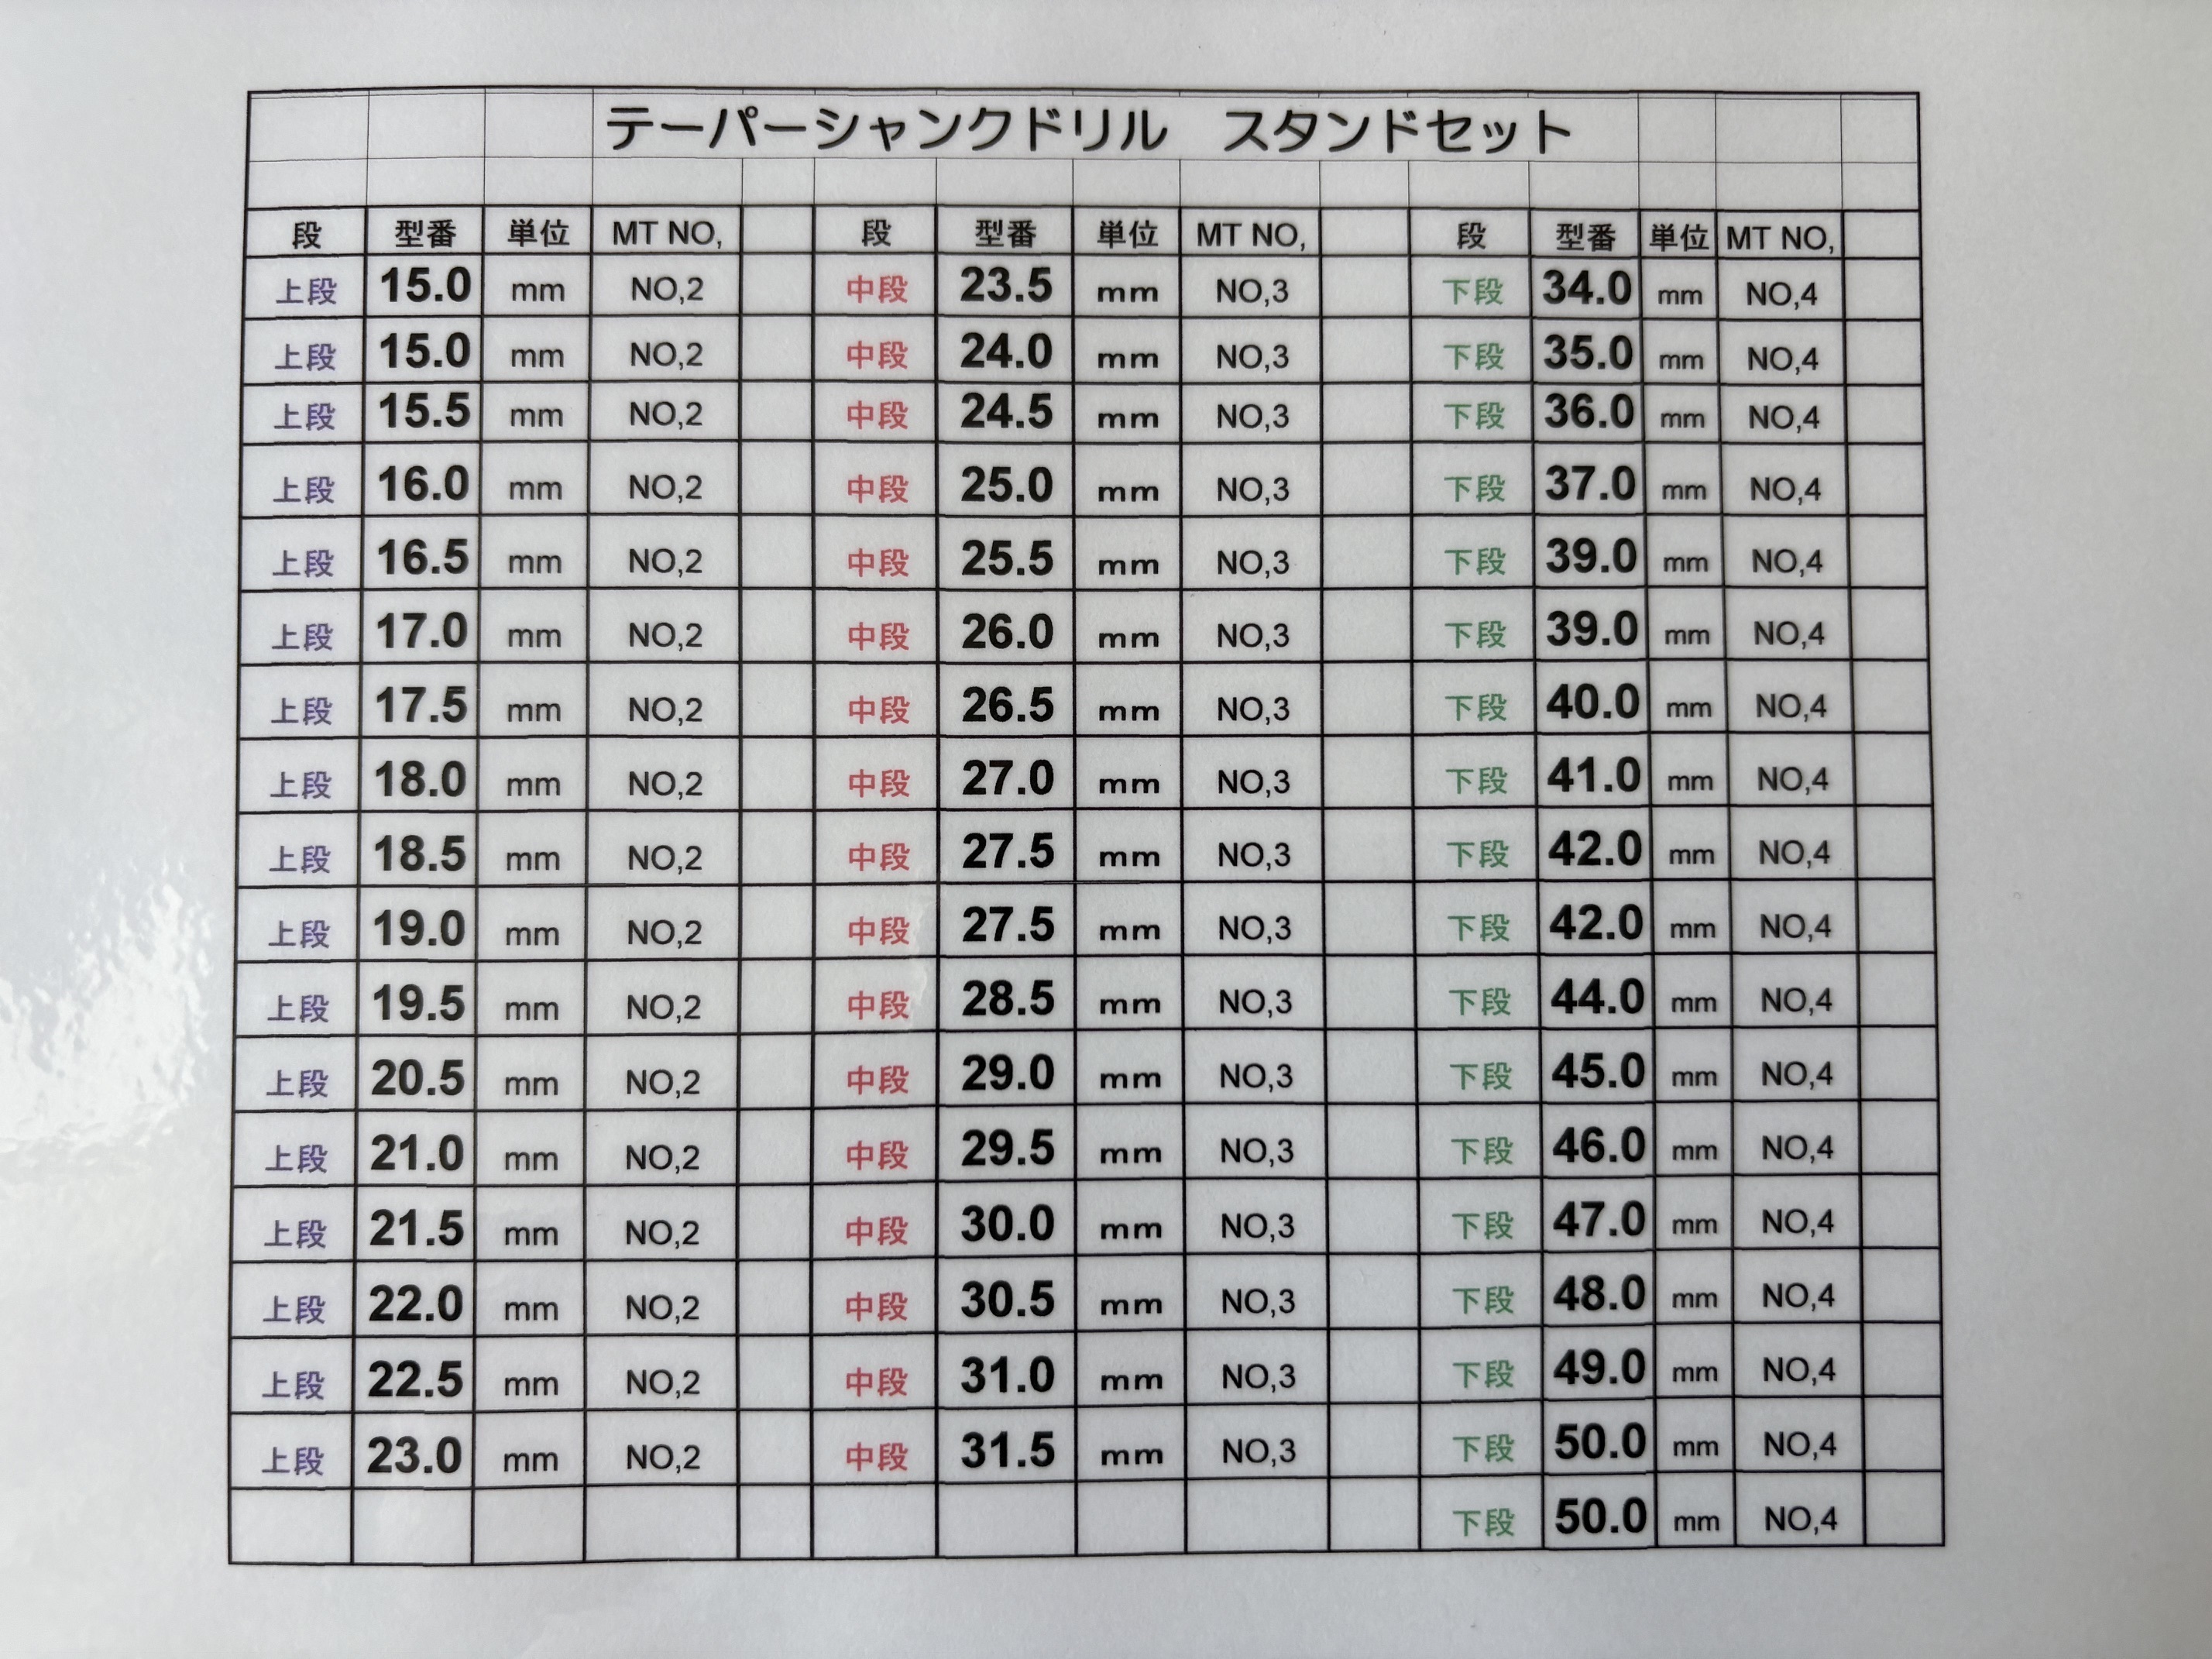 テーパーシャンクドリル　スタンドセット
段 型番 単位 MT NO, 段 型番 単位 MT NO, 段 型番 単位 MT NO,
上段 15.0 mm NO,2 中段 23.5 mm NO,3 下段 34.0 mm NO,4
上段 15.0 mm NO,2 中段 24.0 mm NO,3 下段 35.0 mm NO,4
上段 15.5 mm NO,2 中段 24.5 mm NO,3 下段 36.0 mm NO,4
上段 16.0 mm NO,2 中段 25.0 mm NO,3 下段 37.0 mm NO,4
上段 16.5 mm NO,2 中段 25.5 mm NO,3 下段 39.0 mm NO,4
上段 17.0 mm NO,2 中段 26.0 mm NO,3 下段 39.0 mm NO,4
上段 17.5 mm NO,2 中段 26.5 mm NO,3 下段 40.0 mm NO,4
上段 18.0 mm NO,2 中段 27.0 mm NO,3 下段 41.0 mm NO,4
上段 18.5 mm NO,2 中段 27.5 mm NO,3 下段 42.0 mm NO,4
上段 19.0 mm NO,2 中段 27.5 mm NO,3 下段 42.0 mm NO,4
上段 19.5 mm NO,2 中段 28.5 mm NO,3 下段 44.0 mm NO,4
上段 20.5 mm NO,2 中段 29.0 mm NO,3 下段 45.0 mm NO,4
上段 21.0 mm NO,2 中段 29.5 mm NO,3 下段 46.0 mm NO,4
上段 21.5 mm NO,2 中段 30.0 mm NO,3 下段 47.0 mm NO,4
上段 22.0 mm NO,2 中段 30.5 mm NO,3 下段 48.0 mm NO,4
上段 22.5 mm NO,2 中段 31.0 mm NO,3 下段 49.0 mm NO,4
上段 23.0 mm NO,2 中段 31.5 mm NO,3 下段 50.0 mm NO,4
下段 50.0 mm NO,4